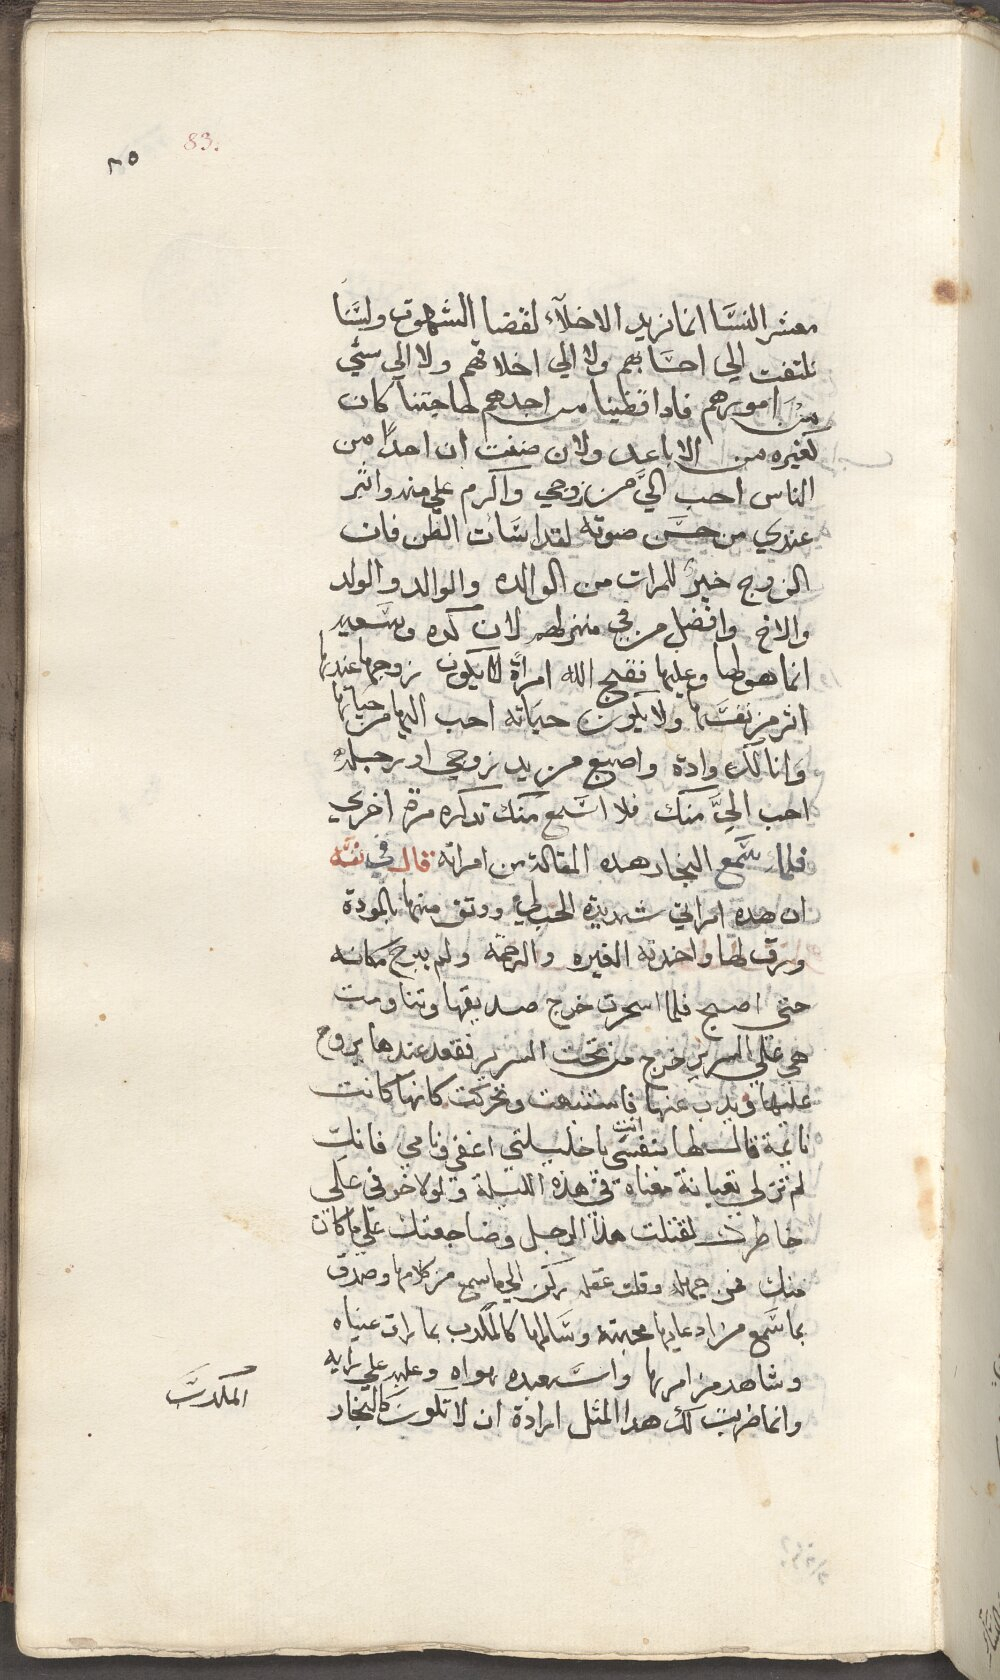 83.
٣٥
معشر النسَّا انما نريد الاخلآء لقضا الشهوت ولسَّنا
نلتفت الي احسَّابهم ولا الي اخلاقهم ولا الي سئي
من امورهم فادا قظينا من احدهم حاجتنا كان
كغيره من الاباعد ولان ضفت ان احدًا من
الناس احب اليَّ من زوجي واكرم علي منه واثر
عندي من حسَّن صوته لقد اسَّات الظن فان
الزوج خيرً للمرات من الوالده والوالد والولد
والاخ وافضل من في منزلهم لان كده وسَّعيه
انما هو لها وعليها فقبح الله امراة لا يكون زوجها عندها
اثر من نفسَّها ولا يكون حيَاته احب اليها من حياتها
وانا لك وادة واصبع من يد زوجي او رجله
احب اليَّ منك فلا اسَّمع منك تدكره مرة اخري
فلما سَّمع النجار هده المقالة من امراته قال في نفسَّه
ان هده امراتي شديدة الحب لي ووتق منها بالمودة
ورق لها واخدته الغيره والرحمة ولم يبرح مكانه
حتي اصبح فلما اسحرت خرج صديقها وتناومت
هي علي السرير خرج من تحت السرير فقعد عندها يروح
عليها ويدب عنها فاستنبهت وتحركت كانها كانت
نايمة قال لها بنفسَّي انت يا خليلتي اغفي ونامي فانك
لم تزلي تعبانة معناه في هذه الليلة ولولا خوفي علي
خاطرك لقتلت هذا الرجل وضاجعتك علي ما كان
منك فمن جهله وقلت عقله ركن الي ما سمع من كلامها وصدق
بما سَّمع من ادعايها محبته وسَّالها كالمكدب بما رات عيناه
وشاهد من امرها واسَّتعبده هواه وغلبه علي رايه
وانما ظربت لك هدا المثل ارادة ان لا تكون كالنجار
المكدبَّ